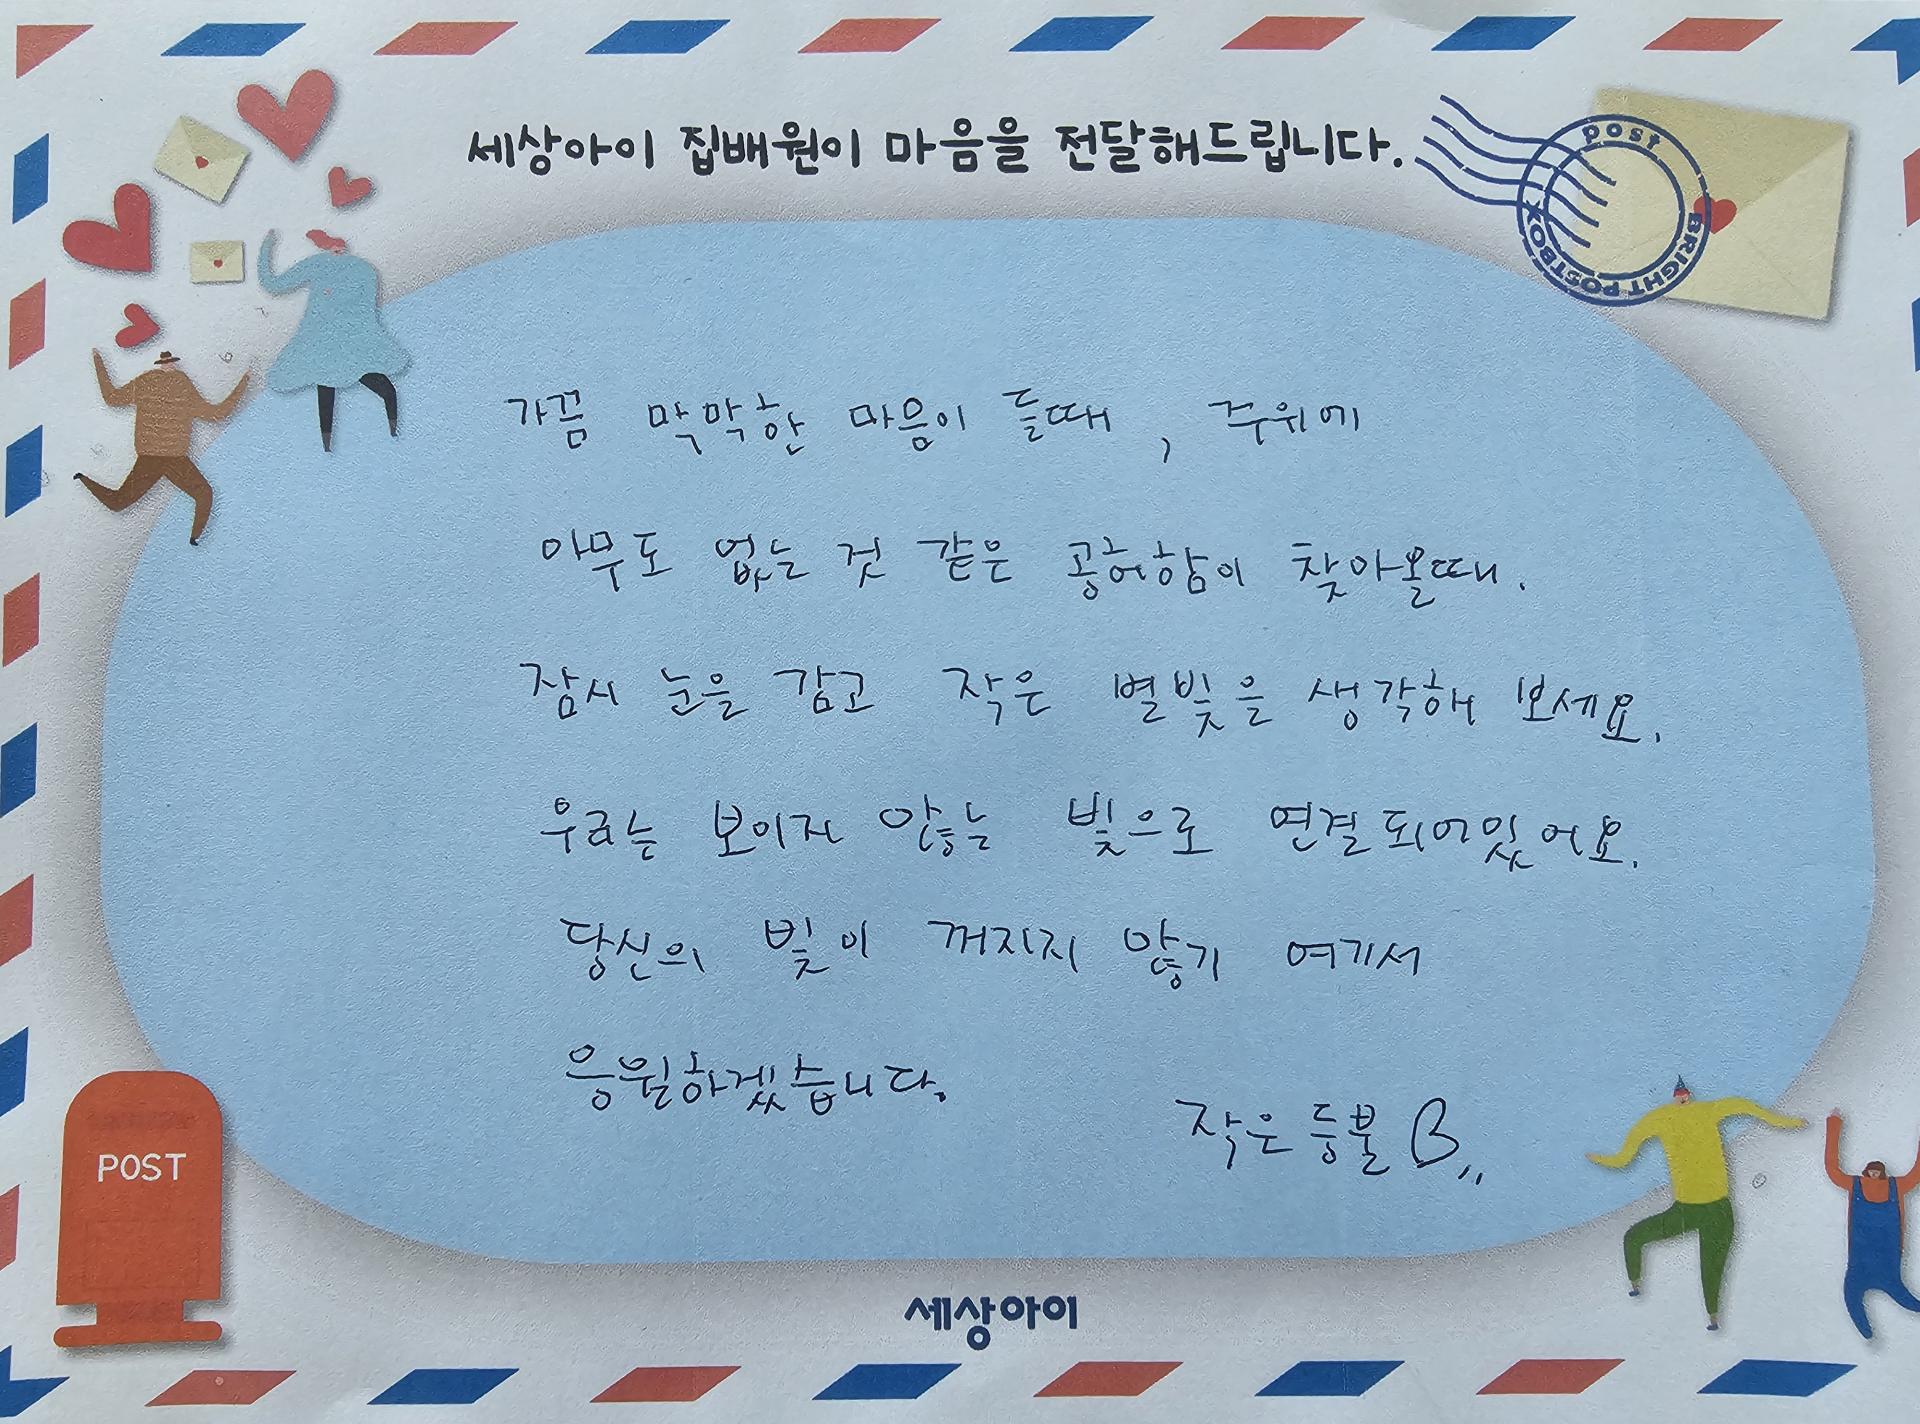 세상아이 집배원이 마음을 전달해드립니다.
post
BRIGHT POSTBOX
가끔 막막한 마음이 들때, 주위에
아무도 없는 것 같은 공허함이 찾아올때.
잠시 눈을 감고 작은 별빛을 생각해 보세요.
우리는 보이지 않는 빛으로 연결되어있어요.
당신의 빛이 꺼지지 않기 여기서
응원하겠습니다.
작은등불 B,,
POST
세상아이